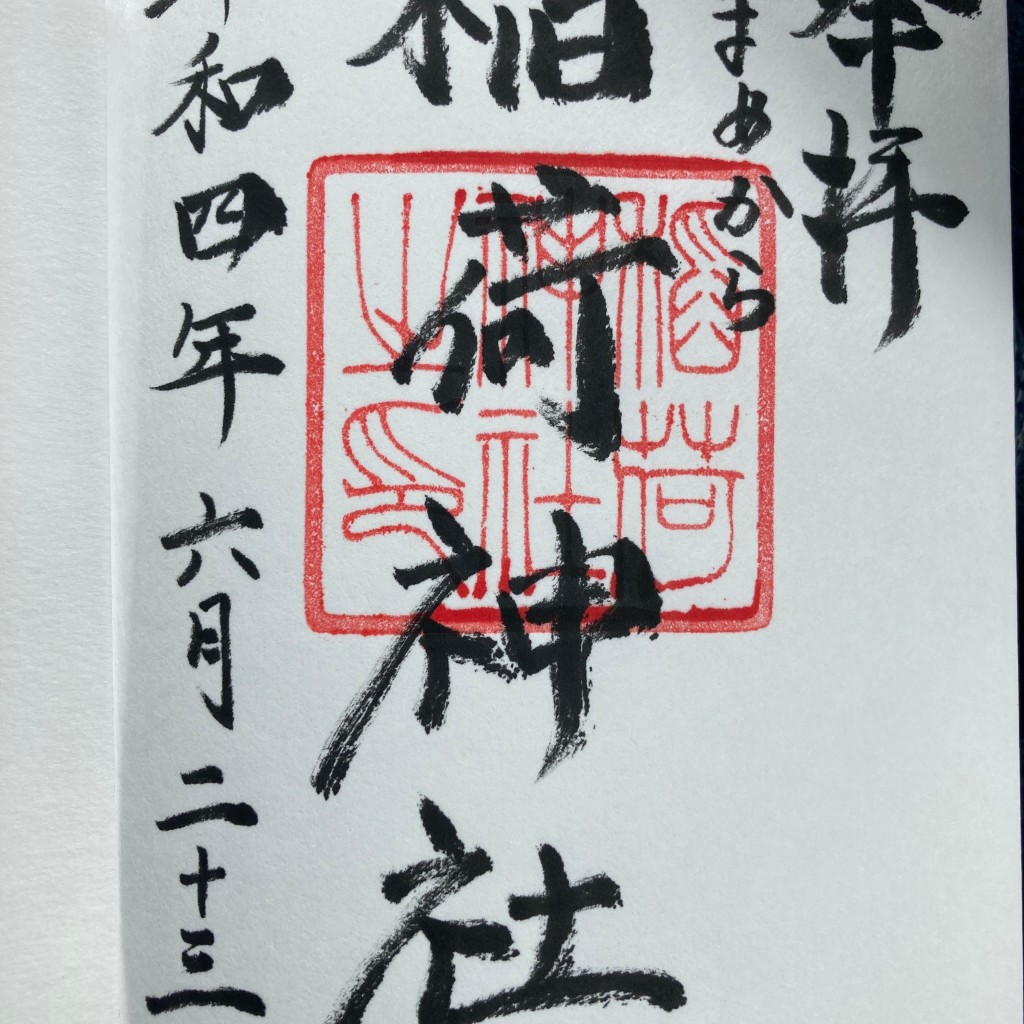 奉拝
まめから
稲荷神社
稲荷
神社
之印
令和四年六月二十三